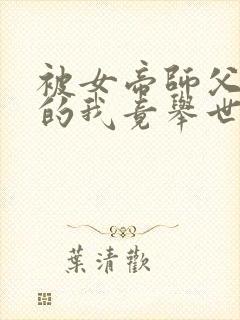 被女帝師父
的我竟舉世
葉清歡